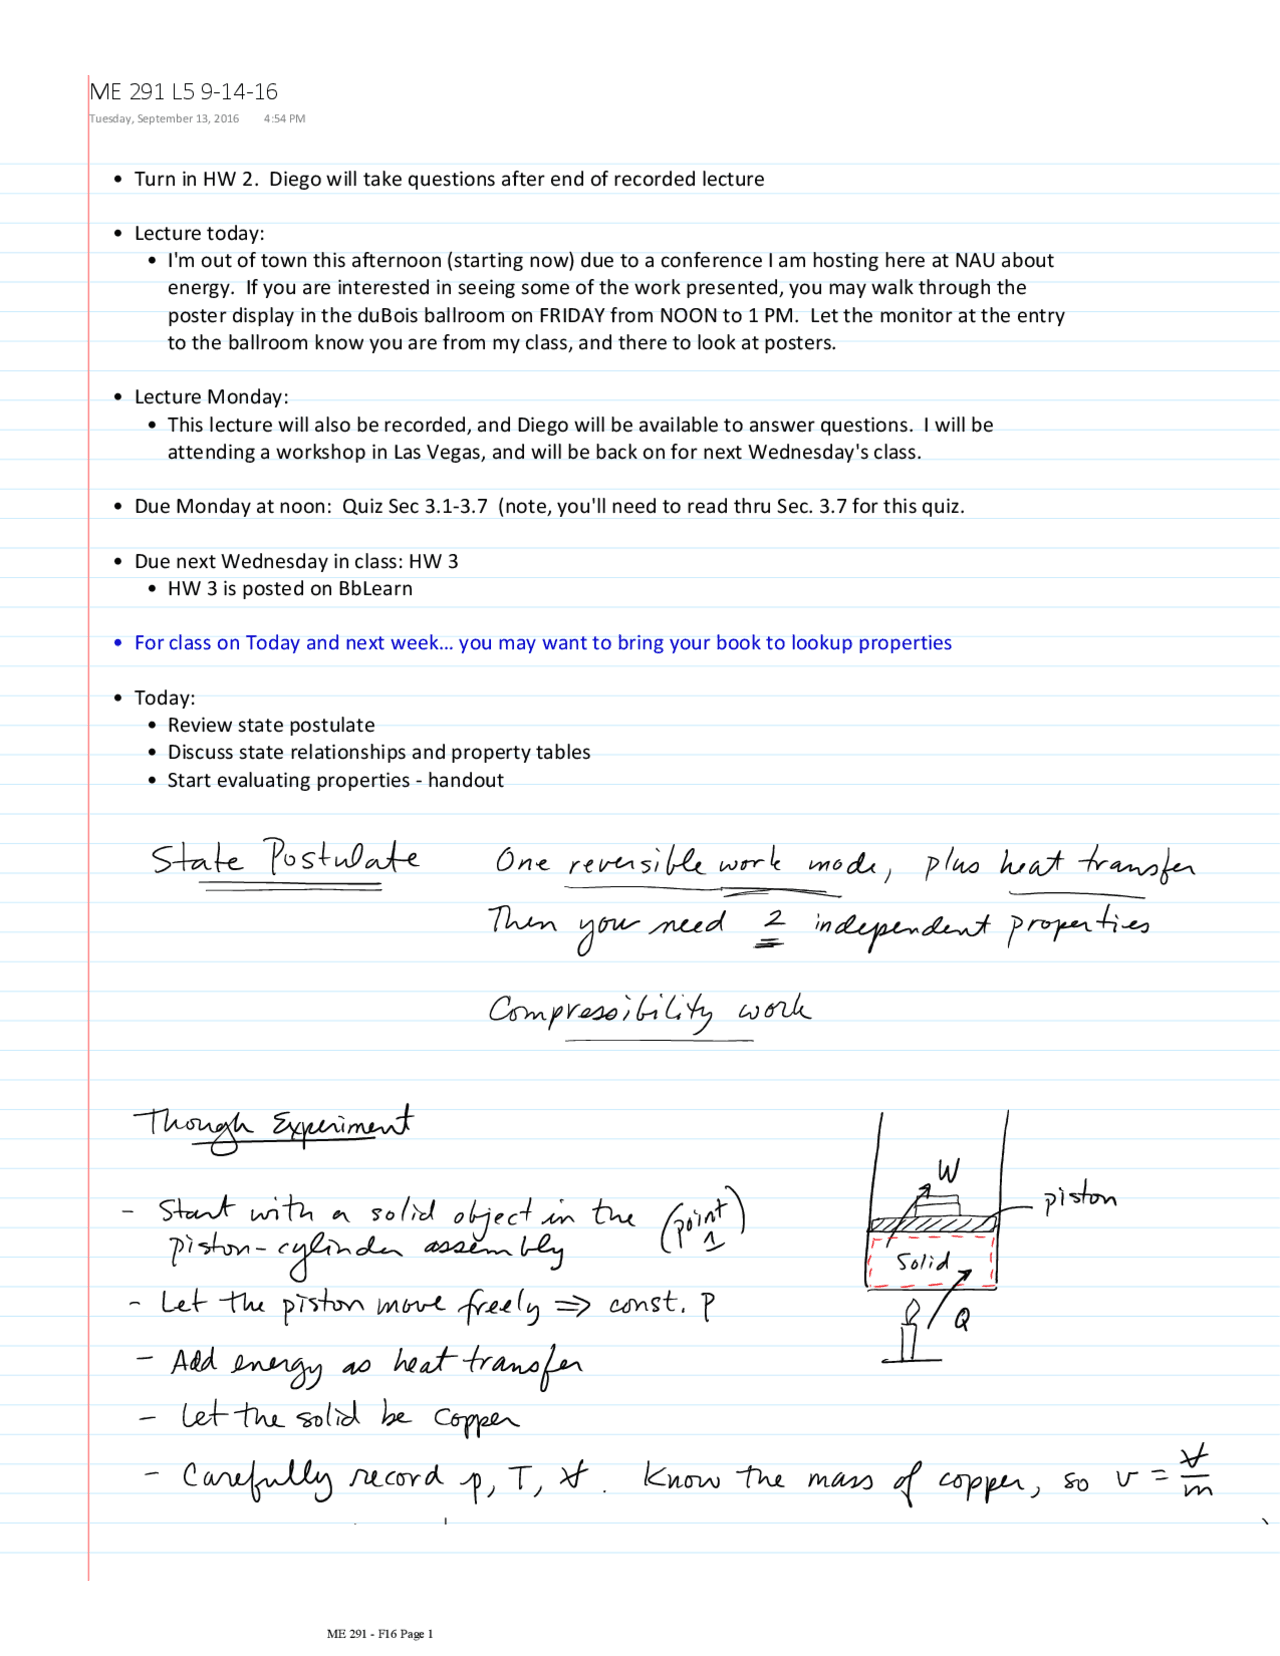 ME 291 L5 9-14-16
Tuesday, September 13, 2016 4:54 PM
• Turn in HW 2. Diego will take questions after end of recorded lecture
• Lecture today:
• I'm out of town this afternoon (starting now) due to a conference I am hosting here at NAU about
energy. If you are interested in seeing some of the work presented, you may walk through the
poster display in the duBois ballroom on FRIDAY from NOON to 1 PM. Let the monitor at the entry
to the ballroom know you are from my class, and there to look at posters.
• Lecture Monday:
• This lecture will also be recorded, and Diego will be available to answer questions. I will be
attending a workshop in Las Vegas, and will be back on for next Wednesday's class.
• Due Monday at noon: Quiz Sec 3.1-3.7 (note, you'll need to read thru Sec. 3.7 for this quiz.
• Due next Wednesday in class: HW 3
• HW 3 is posted on BbLearn
• For class on Today and next week... you may want to bring your book to lookup properties
• Today:
• Review state postulate
• Discuss state relationships and property tables
• Start evaluating properties - handout
State Postulate One reversible work mode, plus heat transfer
Then you need 2 independent properties
Compressibility work
Though Experiment
W
piston
- Start with a solid object in the (point 1)
piston-cylinder assembly
Solid
- Let the piston move freely ⇒ const. P
Q
- Add energy as heat transfer
- Let the solid be copper
- Carefully record p, T, V. Know the mass of copper, so v = V/m
ME 291 - F16 Page 1